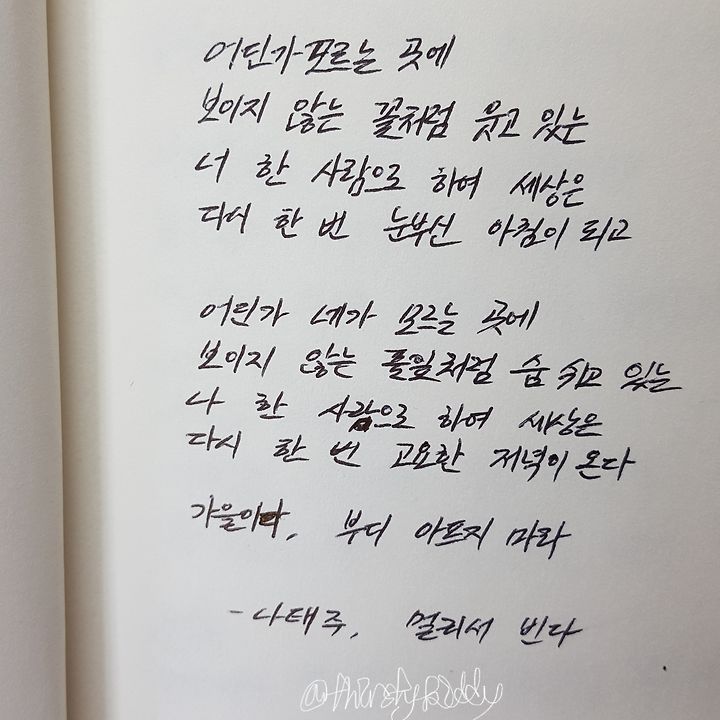 어딘가 모르는 곳에
보이지 않는 꽃처럼 웃고 있는
너 한 사람으로 하여 세상은
다시 한 번 눈부신 아침이 되고
어딘가 네가 모르는 곳에
보이지 않는 풀잎처럼 숨 쉬고 있는
나 한 사람으로 하여 세상은
다시 한 번 고요한 저녁이 온다
가을이다, 부디 아프지 마라
- 나태주, 멀리서 빈다
@thirstykiddy